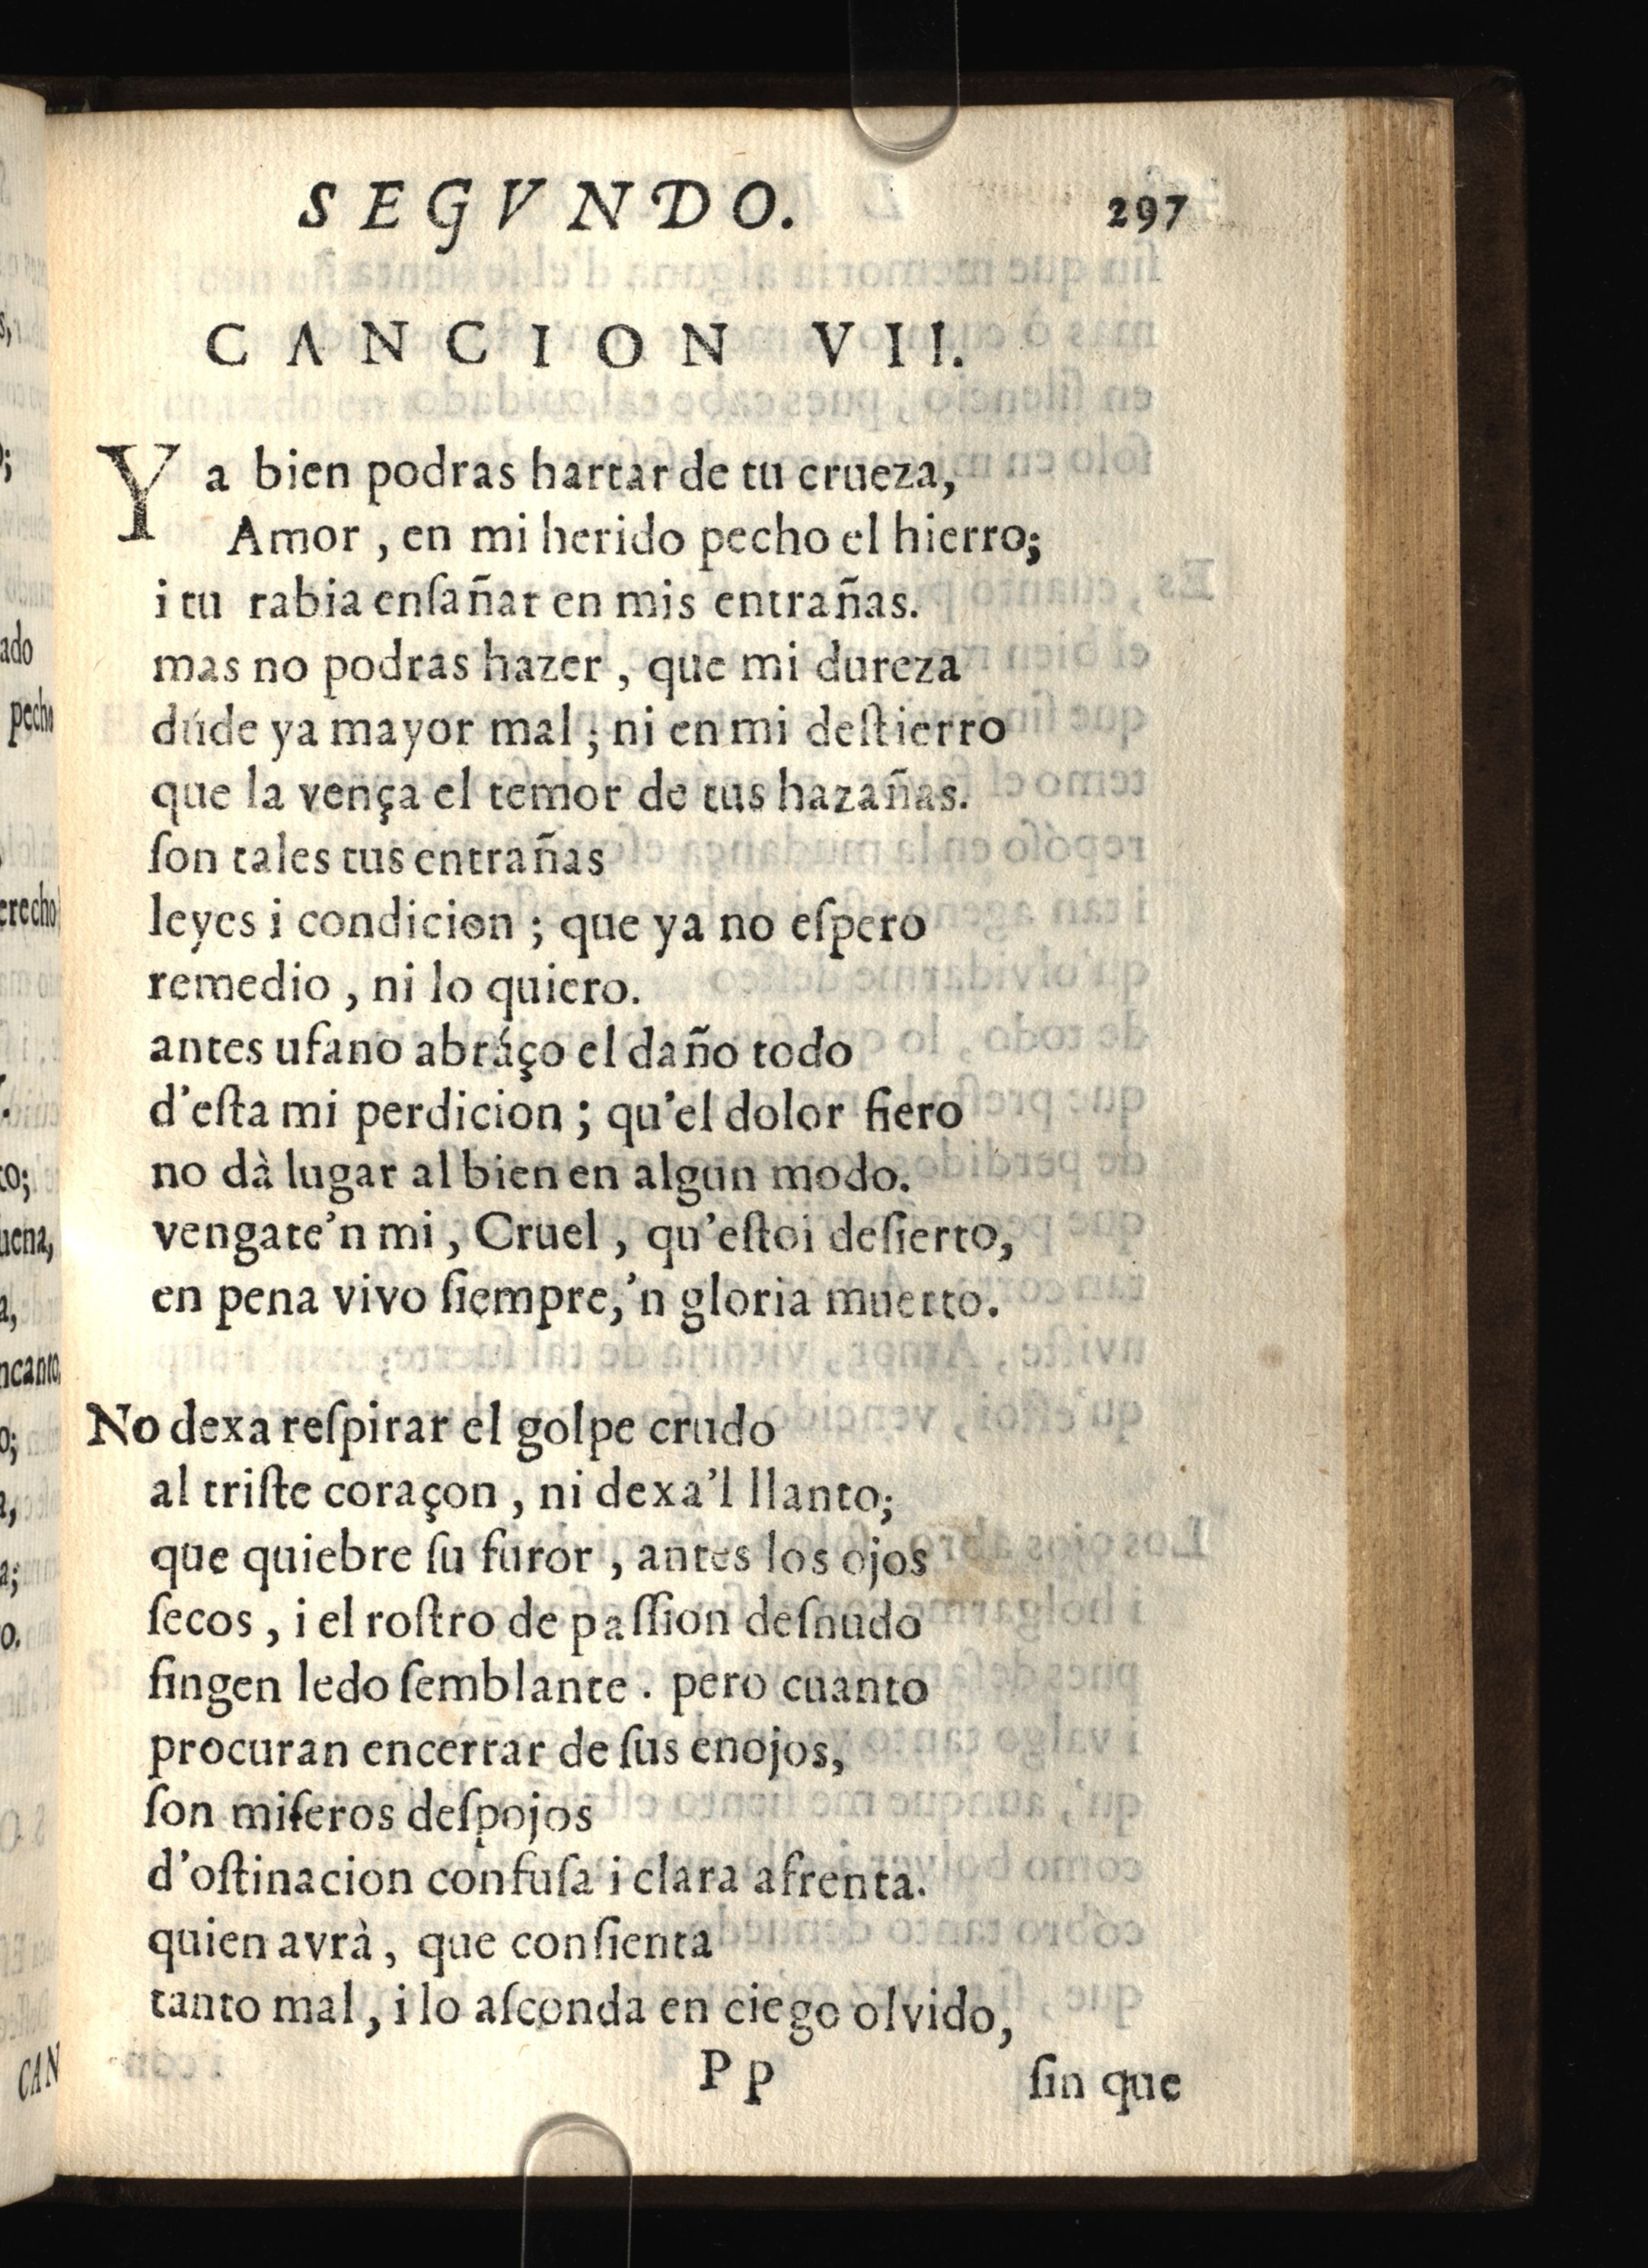 SEGVNDO. 297
CANCION VII.
Ya bien podras hartar de tu crueza,
Amor, en mi herido pecho el hierro;
i tu rabia enſañar en mis entrañas.
mas no podras hazer, que mi dureza
dúde ya mayor mal; ni en mi deſtierro
que la vença el temor de tus hazañas.
ſon tales tus entrañas
leyes i condicion; que ya no eſpero
remedio, ni lo quiero.
antes ufano abráço el daño todo
d'eſta mi perdicion; qu'el dolor fiero
no dà lugar al bien en algun modo.
vengate'n mi, Cruel, qu'eſtoi deſierto,
en pena vivo ſiempre,'n gloria muerto.
No dexa reſpirar el golpe crudo
al triſte coraçon, ni dexa'l llanto;
que quiebre ſu furor, antes los ojos
ſecos, i el roſtro de paſſion deſnudo
fingen ledo ſemblante. pero cuanto
procuran encerrar de ſus enojos,
ſon miſeros deſpojos
d'oſtinacion confuſa i clara afrenta.
quien avrà, que conſienta
tanto mal, i lo aſconda en ciego olvido,
Pp ſin que